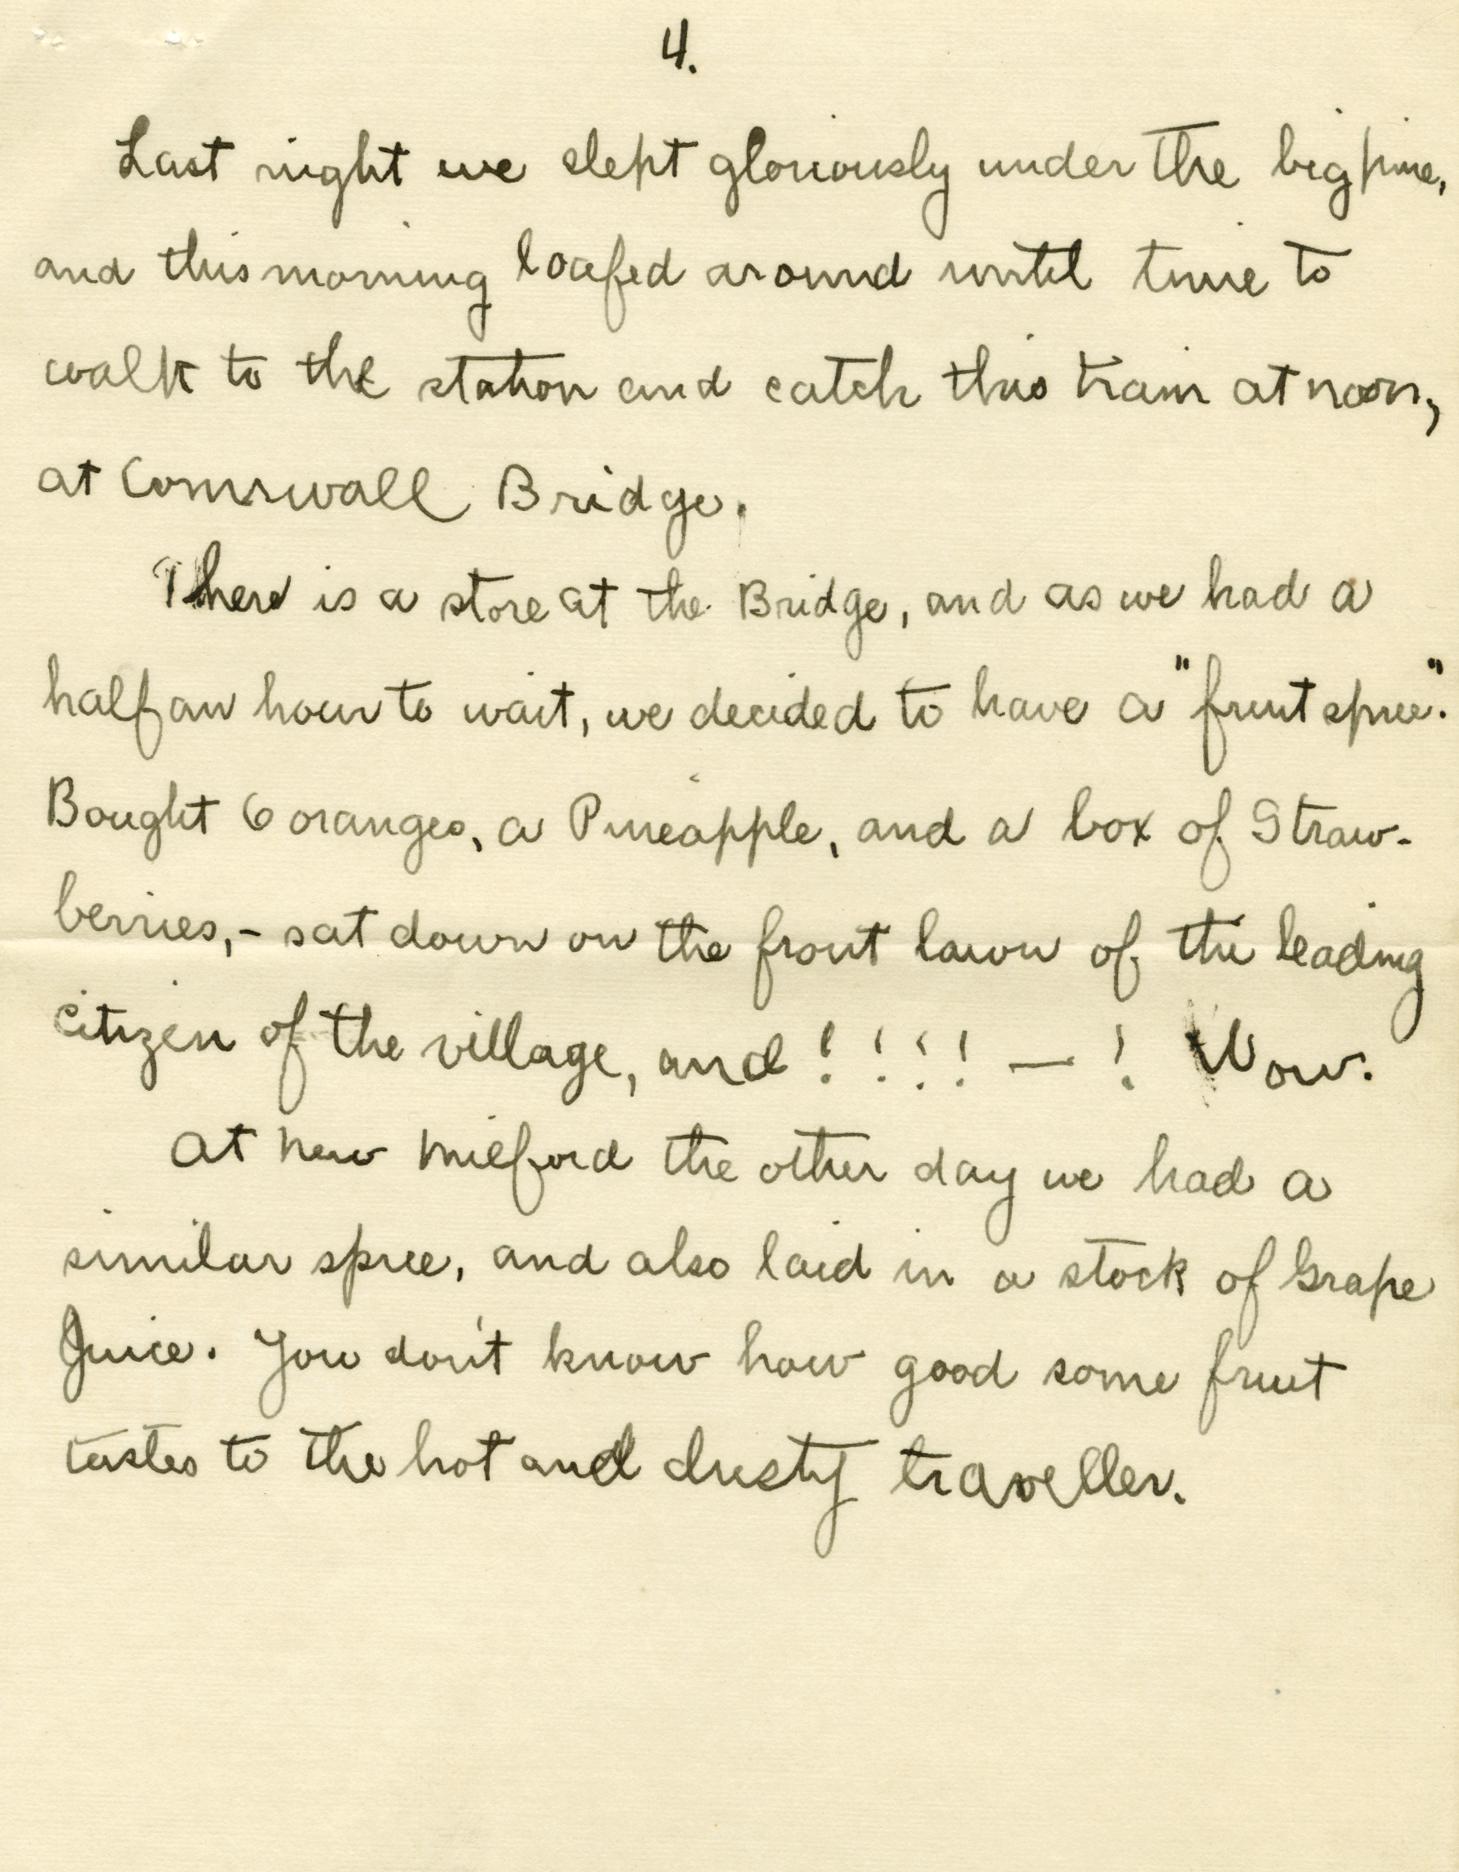 4.
Last night we slept gloriously under the big pine,
and this morning loafed around until time to
walk to the station and catch this train at noon,
at Cornwall Bridge.
There is a store at the Bridge, and as we had a
half an hour to wait, we decided to have a "fruit spree".
Bought 6 oranges, a Pineapple, and a box of Straw-
berries,- sat down on the front lawn of the leading
citizen of the village, and ! ! ! ! — ! Wow.
At New Milford the other day we had a
similar spree, and also laid in a stock of Grape
Juice. You don't know how good some fruit
tastes to the hot and dusty traveller.